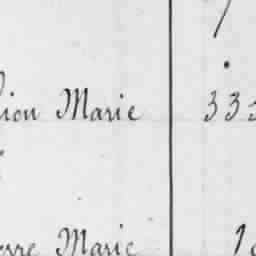 ion Marie 333
erre Marie 1